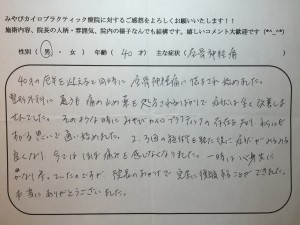 みやびカイロプラクティック療院に対するご感想をよろしくお願いいたします!!
施術内容、院長の人柄・雰囲気、院内の様子なんでも結構です。嬉しいコメント大歓迎です (*^_^*)
性別 ( 男・女 ) 年齢 ( 40 才) 主な症状 ( 坐骨神経痛 )
40才の厄年を迎えると同時に坐骨神経痛に悩まされ始めました。
整形外科に通うも痛み止め薬を処方されるばかりで症状は全く改善しま
せんでした。そのような時にみやびカイロプラクティックの存在を知り、わらにも
すがる思いで通い始めました。2、3回の施術を受けた後に症状がみるみる
良くなり、今ではほぼ痛みを感じなくなりました。一時は心身共に
かなり参っていたのですが、院長のおかげで完全に復帰することができました。
本当にありがとうございました。